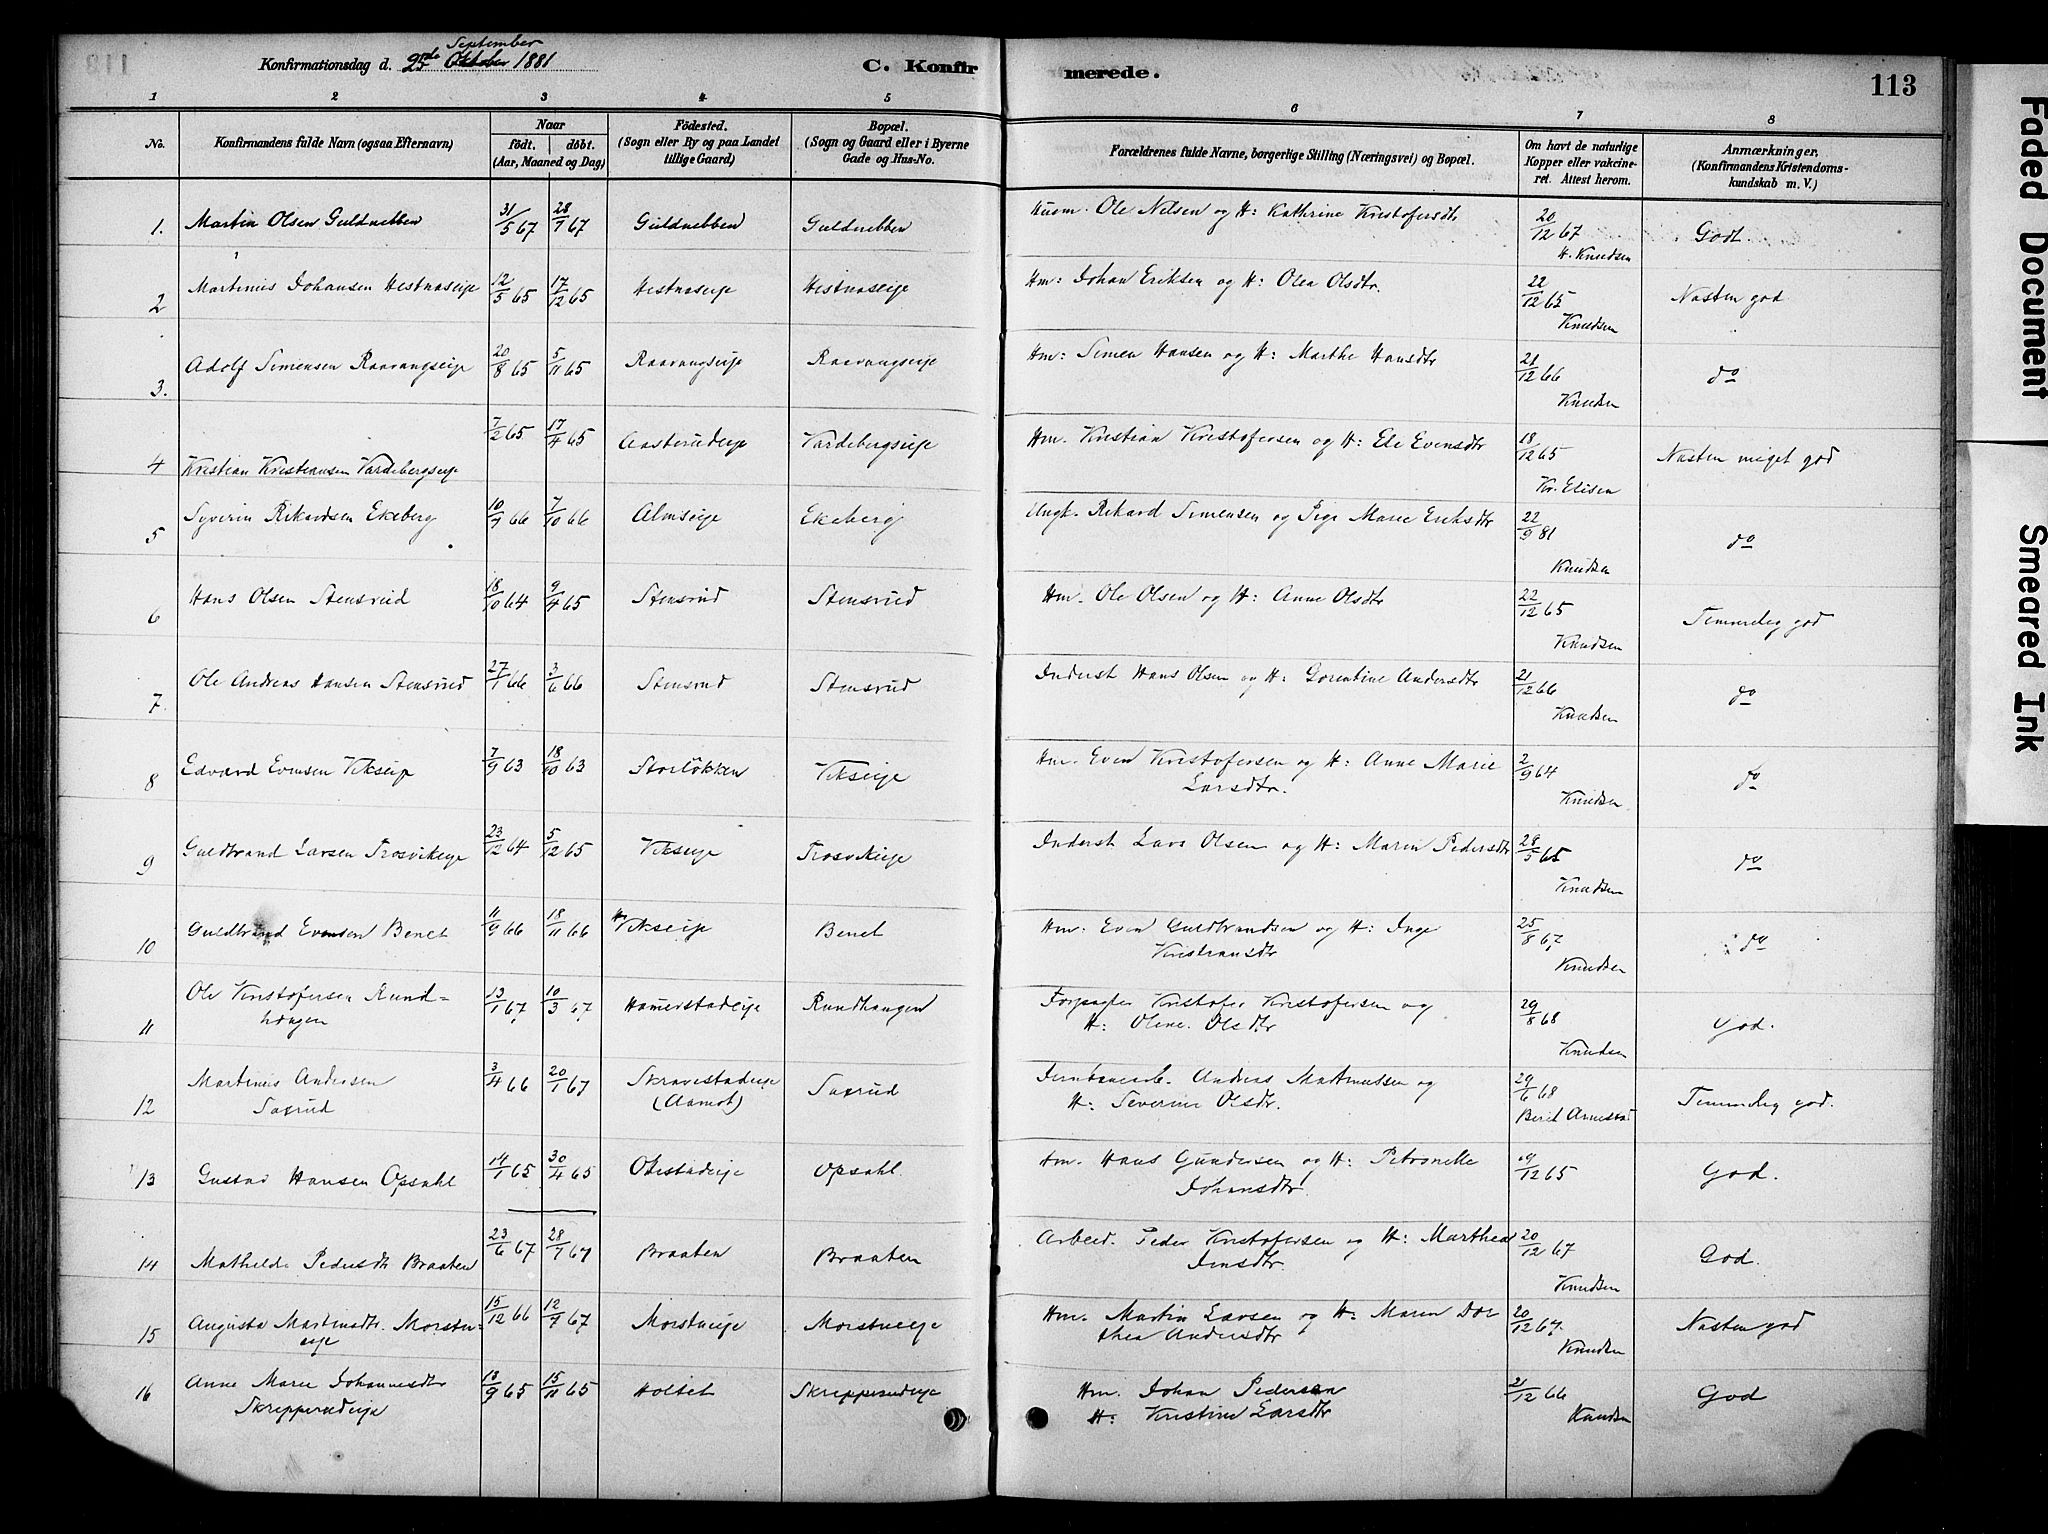 Konfirmationsdag d. 25de September Oktober 1881
C. Konfirmerede.
113
1 2 3 4 5 6 7 8
No.
Konfirmandens fulde Navn (ogsaa Efternavn)
Naar
födt. döbt.
(Aar, Maaned og Dag)
Födested.
(Sogn eller By og paa Landet
tillige Gaard)
Bopæl.
(Sogn og Gaard eller i Byerne
Gade og Hus-No.
Forældrenes fulde Navne, borgerlige Stilling (Næringsvei) og Bopæl.
Om havt de naturlige
Kopper eller vakcine-
ret. Attest herom.
Anmærkninger,
(Konfirmandens Kristendoms-
kundskab m. V.)
1. Martin Olsen Guldnebben 31/5 67 28/7 67 Guldnebben Guldnebben Husm. Ole Nilsen og H: Kathrine Kristofersdtr 20/12 67 Godt.
H. Knudsen
2 Martinus Johansen Hestnæseije 12/5 65 17/12 65 Hestnæseije Hestnæseije Hm: Johan Eriksen og H: Olea Olsdtr. 22/12 65 Næsten god
Knudsen
3. Adolf Simensen Raavangseije 20/8 65 5/11 65 Raavangseije Raavangseije Hm: Simen Hansen og H: Marthe Hansdtr 21/12 66 do
Knudsen
4 Kristian Kristiansen Vardebergseije 7/2 65 17/4 65 Aasterudeije Vardebergseije Hm. Kristian Kristofersen og H: Ele Evensdtr 18/12 65 Næsten meget god
Kr. Elisen
5 Syverin Rikardsen Ekeberg 10/7 66 7/10 66 Almseije Ekeberg Ungk. Rikard Simensen og Pige Marie Eriksdtr 22/9 81 do
Knudsen
6 Hans Olsen Stensrud 18/10 64 9/4 65 Stensrud Stensrud Hm. Ole Olsen og H: Anne Olsdtr 22/12 65 Temmelig god
Knudsen
7. Ole Andreas Hansen Stensrud 27/1 66 3/6 66 Stensrud Stensrud Inderst Hans Olsen og H: Gorentine Andersdtr 21/12 66 do
Knudsen
8 Edvard Evensen Vikseije 7/9 63 18/10 63 Storløkken Vikseije Hm. Even Kristofersen og H: Anne Marie 2/9 64 do
Larsdtr. Knudsen
9 Guldbrand Larsen Trosvikeije 23/12 64 5/12 65 Vikseije Trosvikeije Inderst Lars Olsen og H: Maren Pedersdtr 28/5 65 do
Knudsen
10 Guldbrand Evensen Benet 11/9 66 18/11 66 Vikseije Benet Hm: Even Guldbrandsen og H: Inge 25/8 67 do
Kristiansdtr Knudsen
11 Ole Kristofersen Rund= 13/1 67 10/3 67 Hamerstadeije Rundhaugen Forpagter Kristofer Kristofersen og 29/8 68 God.
haugen H: Oline Olsdtr Knudsen
12 Martinus Andersen 3/4 66 20/1 67 Skravestadeije Saxrud Jernbanearb. Andreas Martinussen og 29/6 68 Temmelig god.
Saxrud (Aamot) H: Severine Olsdtr. Berit Arnestad
13 Gustav Hansen Opsahl 14/1 65 30/4 65 Okestadeije Opsahl Hm. Hans Gundersen og H: Petronelle 19/12 65 God.
Johansdtr
14 Mathilde Pedersdtr Braaten 23/6 67 28/7 67 Braaten Braaten Arbeid. Peder Kristofersen og H: Marthea 20/12 67 God.
Jensdtr. Knudsen
15 Augusta Martinsdtr. Morstu= 15/12 66 12/7 67 Morstueije Morstueije Hm. Martin Larsen og H: Maren Dor 20/12 67. Næsten god
eije thea Andersdtr Knudsen
16 Anne Marie Johannesdtr 18/9 65 15/11 65 Holtet Skripperudeije Hm. Johan Pedersen 21/12 66 God
Skripperudeije H: Kristine Larsdtr Knudsen
Faded Document
Smeared Ink